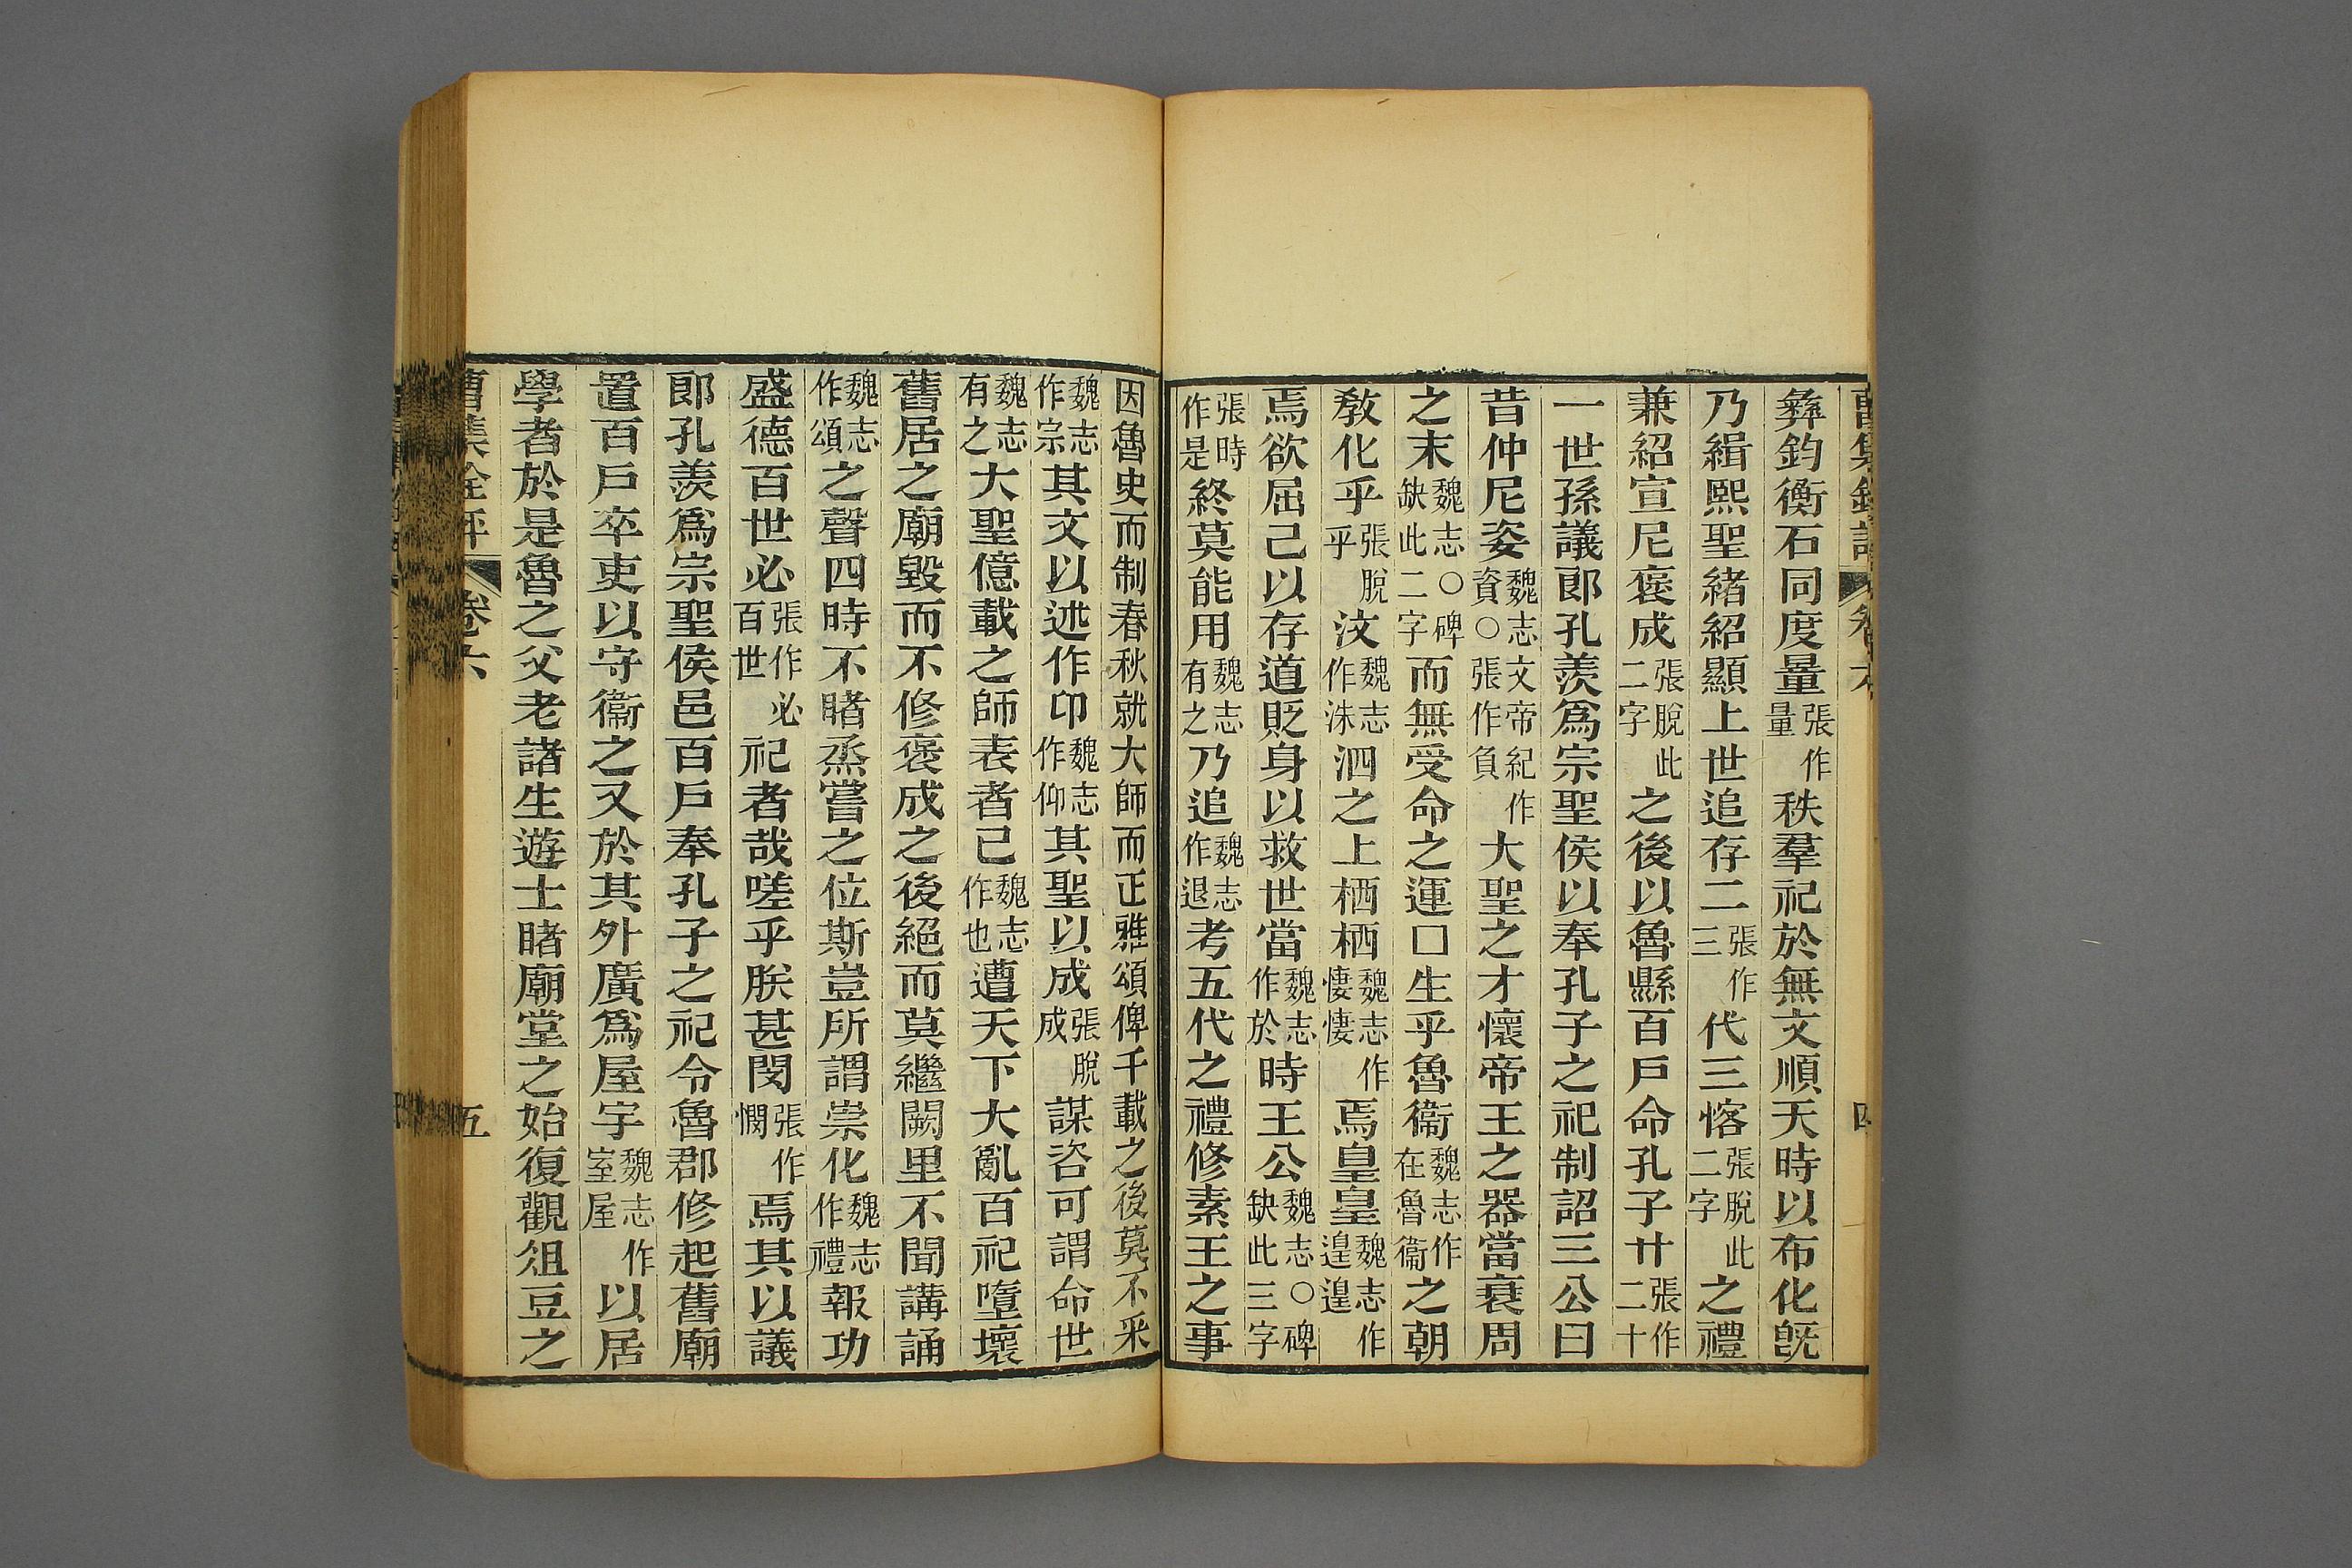 彝鈞衡石同度量張作量秩羣祀於無文順天時以布化旣
乃緝熙聖緒紹顯上世追存二張作三代三愘張脫此二字之禮
兼紹宣尼褒成張脫此二字之後以魯縣百戶命孔子廿張作二十
一世孫議郎孔羨爲宗聖侯以奉孔子之祀制詔三公曰
昔仲尼姿魏志文帝紀作資○張作負大聖之才懷帝王之器當衰周
之末魏志○碑缺此二字而無受命之運□生乎魯衞魏志作在魯衞之朝
敎化乎張脫乎汶魏志作洙泗之上栖栖魏志作悽悽焉皇皇魏志作遑遑
焉欲屈己以存道貶身以救世當魏志作於時王公魏志○碑缺此三字
張時作是終莫能用魏志有之乃追魏志作退考五代之禮修素王之事
因魯史而制春秋就大師而正雅頌俾千載之後莫不采
魏志作宗其文以述作卬魏志作仰其聖以成張脫成謀咨可謂命世
魏志有之大聖億載之師表者已魏志作也遭天下大亂百祀墮壞
舊居之廟毀而不修褒成之後絕而莫繼闕里不聞講誦
魏志作頌之聲四時不睹烝嘗之位斯豈所謂崇化魏志作禮報功
盛德百世必張作必百世祀者哉嗟乎朕甚閔張作憫焉其以議
郎孔羨爲宗聖侯邑百戶奉孔子之祀令魯郡修起舊廟
置百戶卒吏以守衞之又於其外廣爲屋宇魏志作室屋以居
學者於是魯之父老諸生遊士睹廟堂之始復觀俎豆之
曹集全評 卷六 五